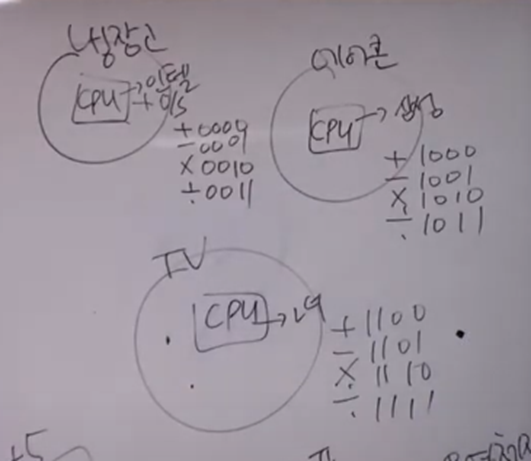 냉장고
CPU → 인텔
+0000
-0001
×0010
÷0011
에어콘
CPU → 삼성
+ 1000
- 1001
× 1010
÷ 1011
TV
CPU → LG
+ 1100
- 1101
× 1110
÷ 1111
+5